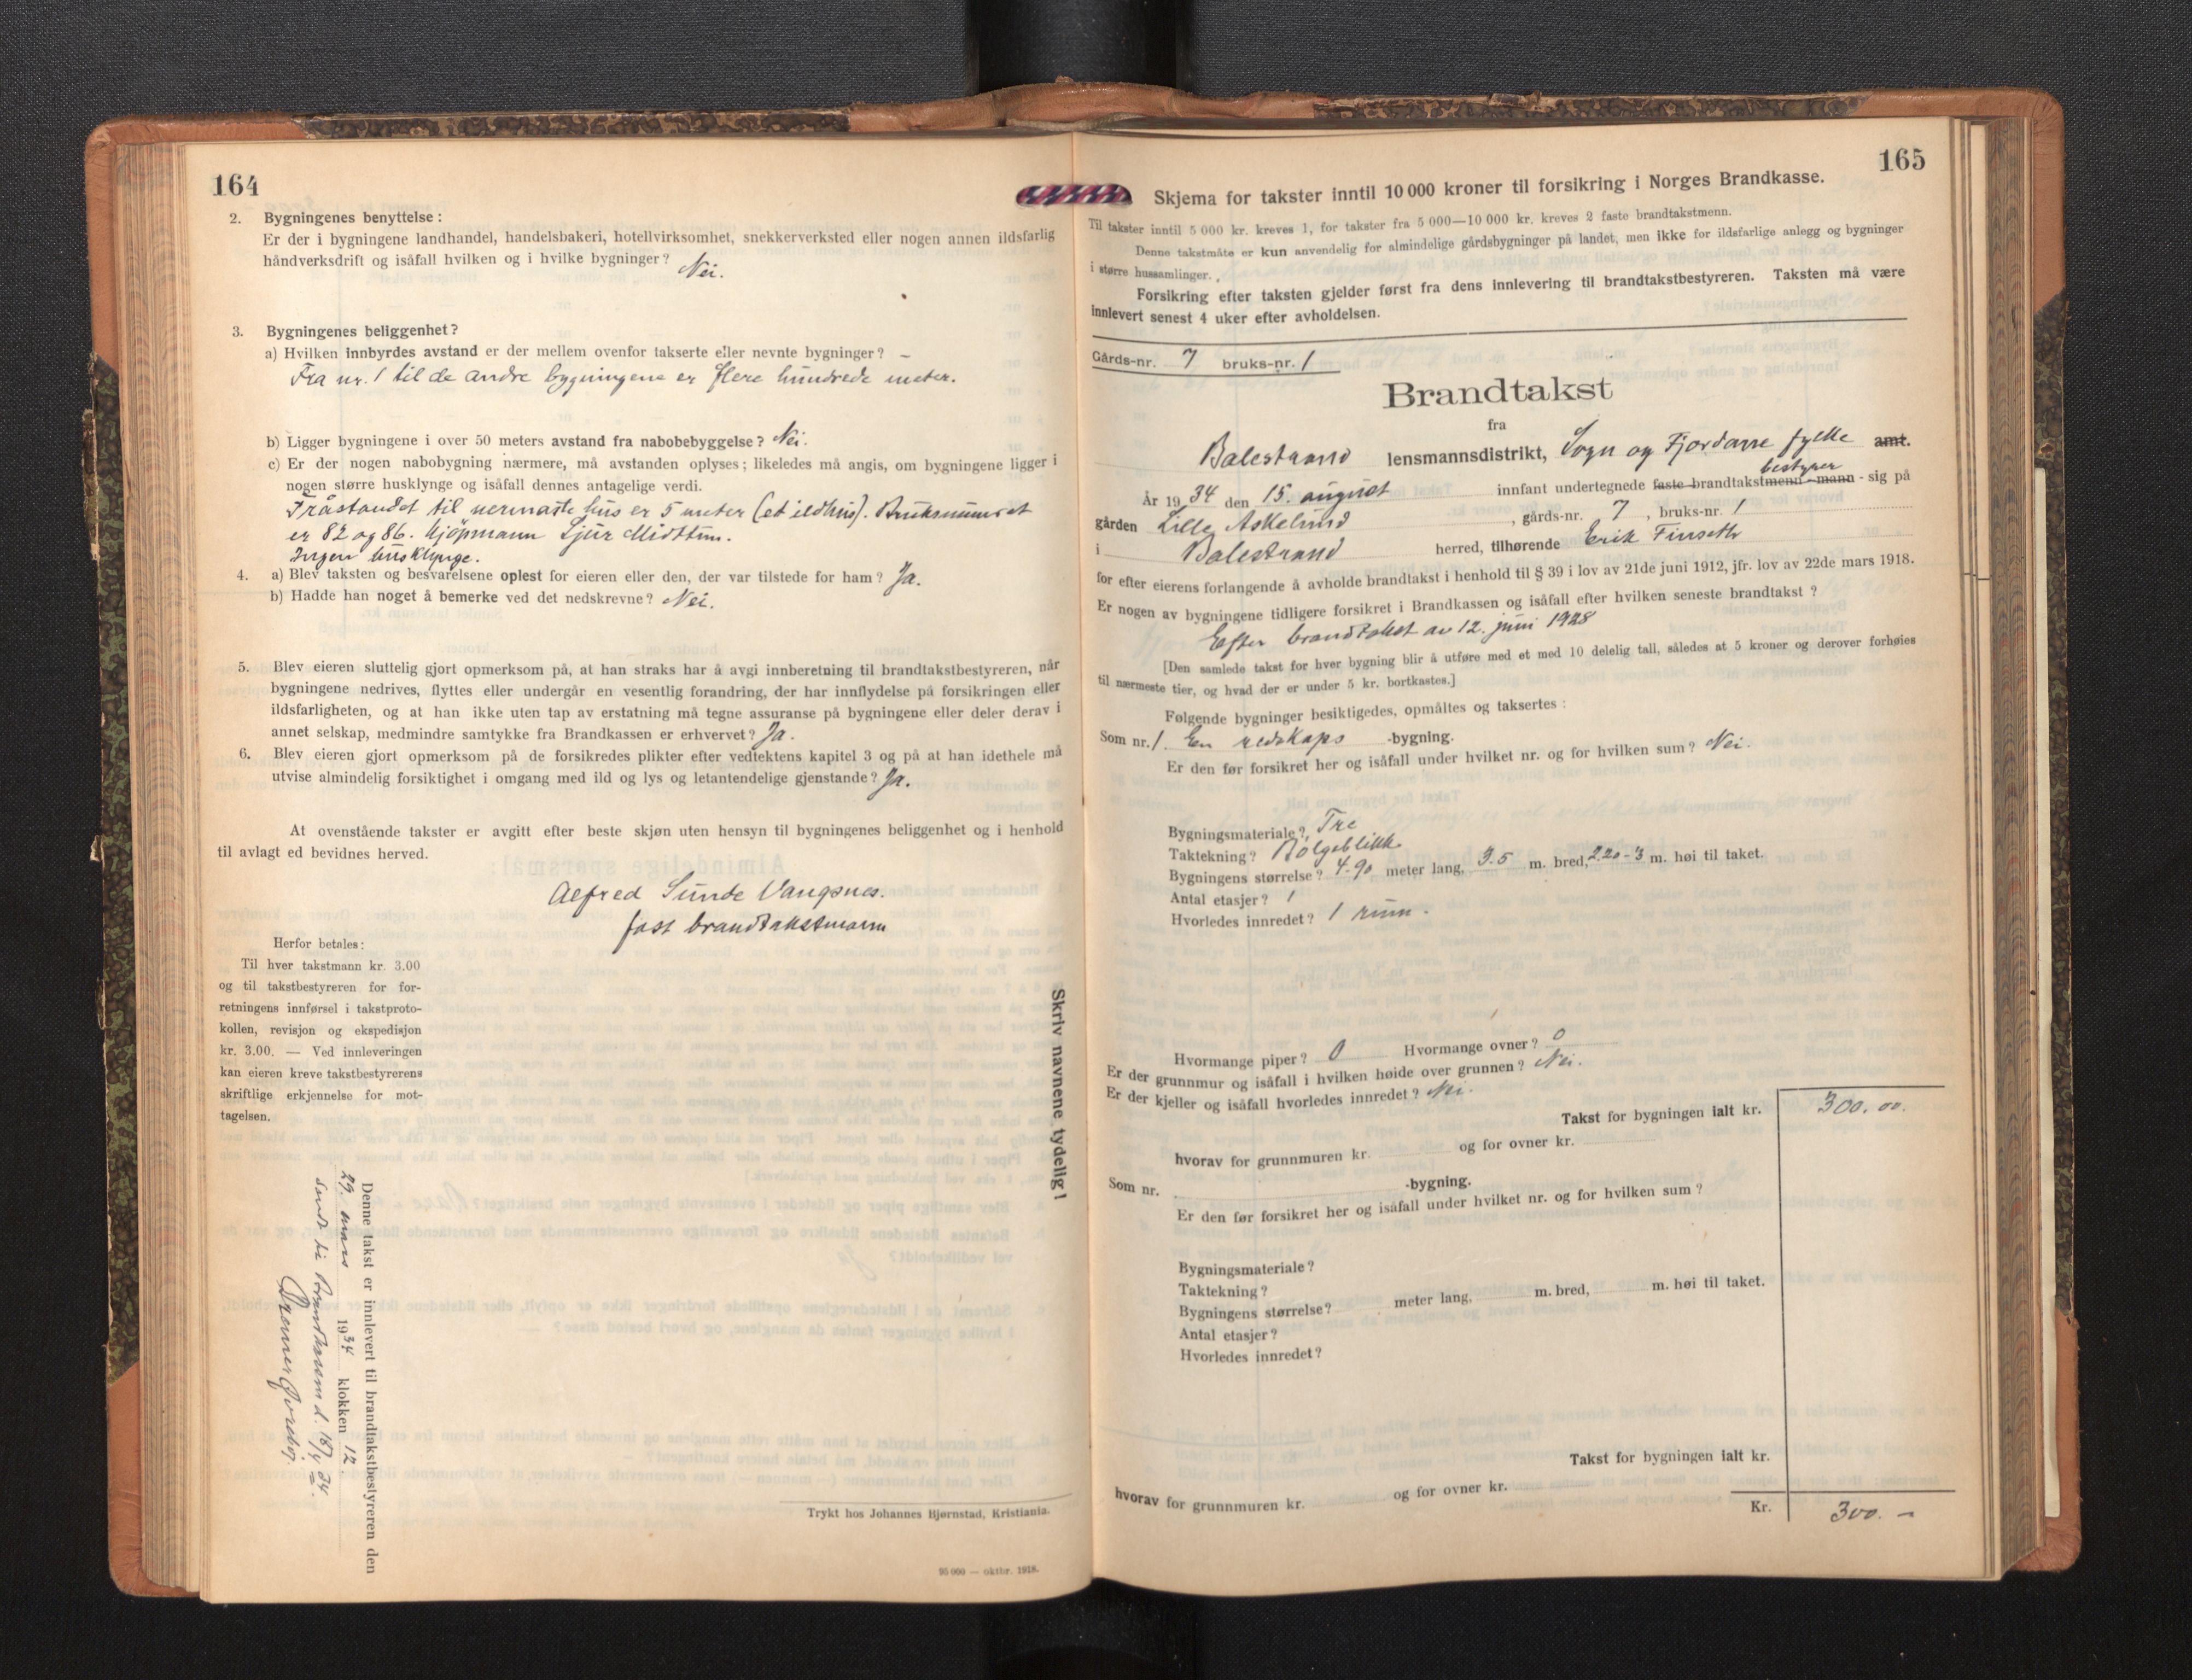 164
2. Bygningenes benyttelse:
Er der i bygningene landhandel, handelsbakeri, hotellvirksomhet, snekkerverksted eller nogen annen ildsfarlig
håndverksdrift og isåfall hvilken og i hvilke bygninger? Nei.
3. Bygningenes beliggenhet?
a) Hvilken innbyrdes avstand er der mellem ovenfor takserte eller nevnte bygninger? –
Fra nr. 1 til de andre bygningene er flere hundrede meter.
b) Ligger bygningene i over 50 meters avstand fra nabobebyggelse? Nei.
c) Er der nogen nabobygning nærmere, må avstanden oplyses; likeledes må angis, om bygningene ligger i
nogen større husklynge og isåfall dennes antagelige verdi.
Fråstandet til nermaste hus er 5 meter (et ildhus). Bruksnumret
er 82 og 86. Kjöpmann Sjur Midttun.
Ingen husklynge.
4. a) Blev taksten og besvarelsene oplest for eieren eller den, der var tilstede for ham? Ja.
b) Hadde han noget å bemerke ved det nedskrevne? Nei.
5. Blev eieren sluttelig gjort opmerksom på, at han straks har å avgi innberetning til brandtakstbestyreren, når
bygningene nedrives, flyttes eller undergår en vesentlig forandring, der har innflydelse på forsikringen eller
ildsfarligheten, og at han ikke uten tap av erstatning må tegne assuranse på bygningene eller deler derav i
annet selskap, medmindre samtykke fra Brandkassen er erhvervet? Ja.
6. Blev eieren gjort opmerksom på de forsikredes plikter efter vedtektens kapitel 3 og på at han idethele må
utvise almindelig forsiktighet i omgang med ild og lys og letantendelige gjenstande? Ja.
At ovenstående takster er avgitt efter beste skjøn uten hensyn til bygningenes beliggenhet og i henhold
til avlagt ed bevidnes herved.
Alfred Sunde Vangsnes.
fast brandtakstmann
Herfor betales:
Til hver takstmann kr. 3.00
og til takstbestyreren for for-
retningens innførsel i takstproto-
kollen, revisjon og ekspedisjon
kr. 3.00. — Ved innleveringen
kan eieren kreve takstbestyrerens
skriftlige erkjennelse for mot-
tagelsen.
Skriv navnene tydelig!
Denne takst er innlevert til brandtakstbestyreren den
29. mars 1934 klokken 12.
Sendt til Brandkassen d. 18/4 34.
Trykt hos Johannes Bjørnstad, Kristiania.
95 000 — oktbr. 1918.
165
Skjema for takster inntil 10 000 kroner til forsikring i Norges Brandkasse.
Til takster inntil 5 000 kr. kreves 1, for takster fra 5 000—10 000 kr. kreves 2 faste brandtakstmenn.
Denne takstmåte er kun anvendelig for almindelige gårdsbygninger på landet, men ikke for ildsfarlige anlegg og bygninger
i større hussamlinger.
Forsikring efter taksten gjelder først fra dens innlevering til brandtakstbestyreren. Taksten må være
innlevert senest 4 uker efter avholdelsen.
Gårds-nr. 7 bruks-nr. 1
Brandtakst
fra
Balestrand lensmannsdistrikt, Sogn og Fjordane fylke amt.
bestyrer
År 1934 den 15. august innfant undertegnede faste brandtakstmenn -mann - sig på
gården Lille Askelund, gårds-nr. 7, bruks-nr. 1
i Balestrand herred, tilhørende Erik Finseth
for efter eierens forlangende å avholde brandtakst i henhold til § 39 i lov av 21de juni 1912, jfr. lov av 22de mars 1918.
Er nogen av bygningene tidligere forsikret i Brandkassen og isåfall efter hvilken seneste brandtakst?
Efter brandtakst av 12. juni 1928
[Den samlede takst for hver bygning blir å utføre med et med 10 delelig tall, således at 5 kroner og derover forhøies
til nærmeste tier, og hvad der er under 5 kr. bortkastes.]
Følgende bygninger besiktigedes, opmåltes og taksertes:
Som nr. 1. En redskaps -bygning.
Er den før forsikret her og isåfall under hvilket nr. og for hvilken sum? Nei.
Bygningsmateriale? Tre
Taktekning? Bölgeblikk.
Bygningens størrelse? 4.90 meter lang, 3.5 m. bred, 2.20-3 m. høi til taket.
Antal etasjer? 1
Hvorledes innredet? 1 rum.
Hvormange piper? 0 Hvormange ovner? 0
Er der grunnmur og isåfall i hvilken høide over grunnen? Nei.
Er der kjeller og isåfall hvorledes innredet? Nei.
Takst for bygningen ialt kr. 300.00.
hvorav for grunnmuren kr. og for ovner kr.
Som nr. -bygning.
Er den før forsikret her og isåfall under hvilket nr. og for hvilken sum?
Bygningsmateriale?
Taktekning?
Bygningens størrelse? meter lang, m. bred, m. høi til taket.
Antal etasjer?
Hvorledes innredet?
Takst for bygningen ialt kr.
hvorav for grunnmuren kr. og for ovner kr.
Kr. 300. –